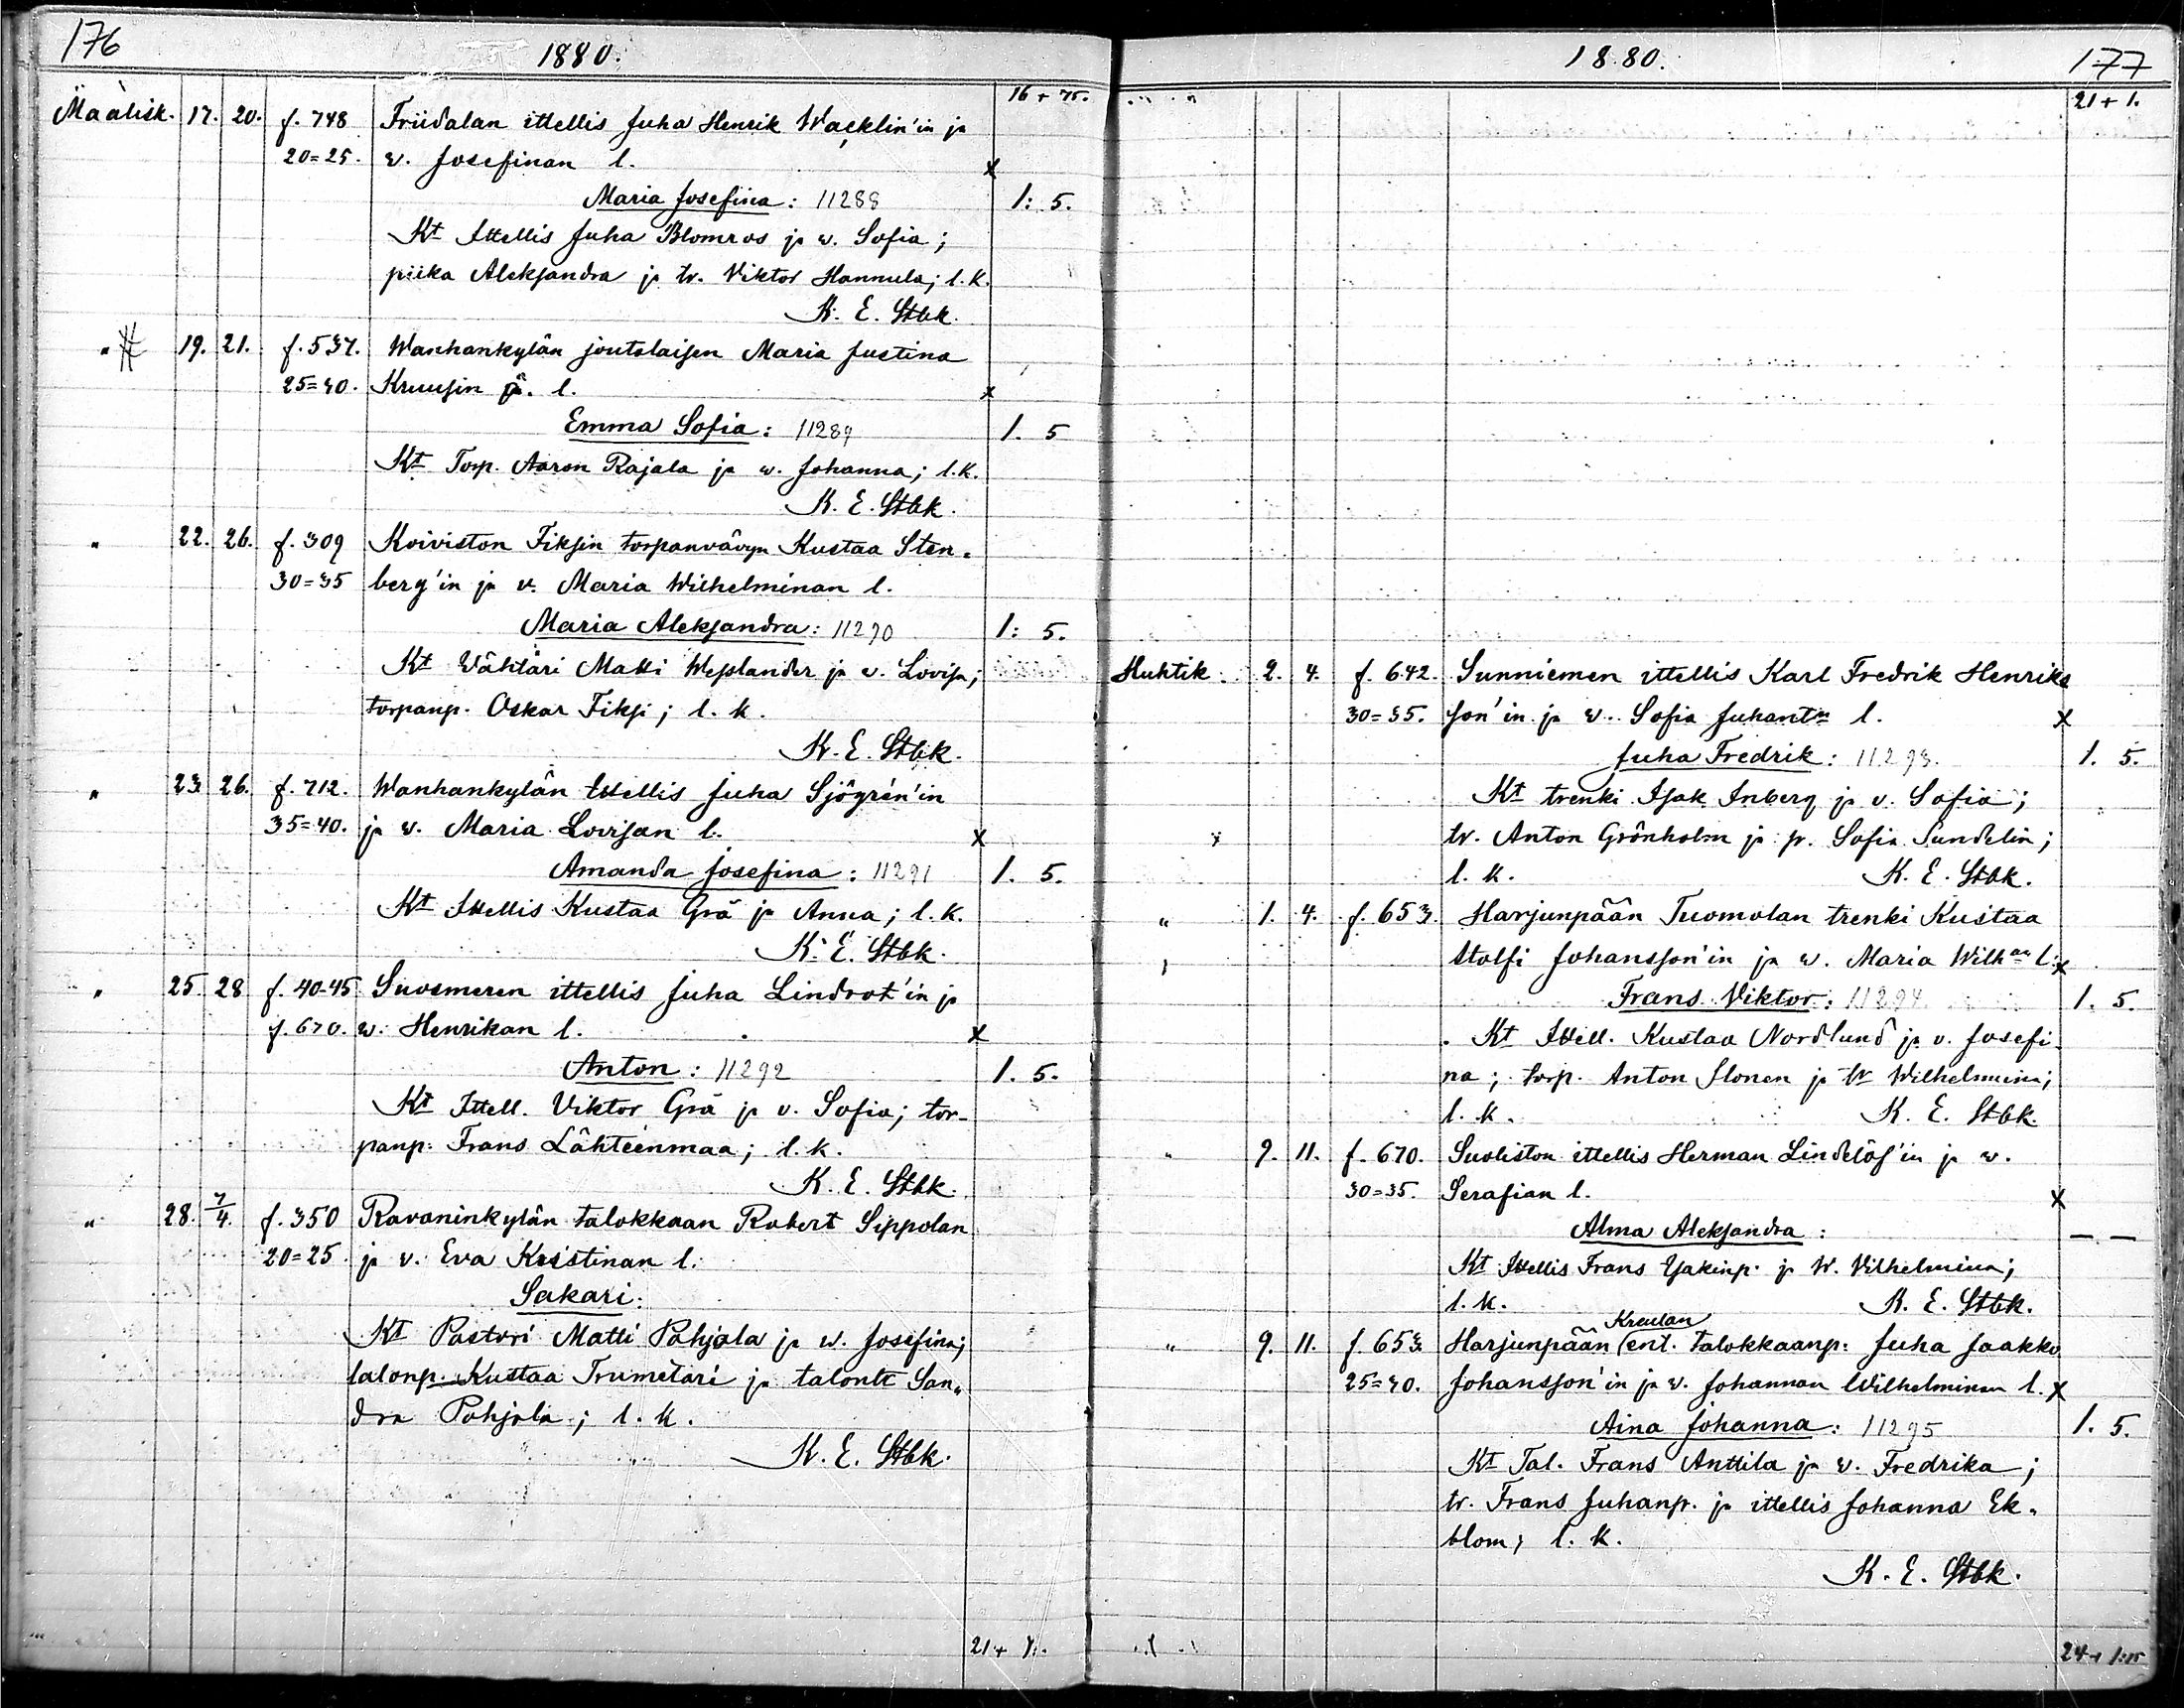 176
1880.
16+75.
Maalisk. 17. 20. f. 748 Friidalan ittellis Juha Henrik Wacklin'in ja
20=25. w. Josefinan l. x
Maria Josefina: 11288 1: 5.
Kt Ittellis Juha Blomros ja w. Sofia;
piika Aleksandra ja tr. Viktor Hannula; l.k.
K. E. Stbk.
" 19. 21. f. 537. Wanhankylän joutolaisen Maria Justina
25=40. Kruusin ä. l. x
Emma Sofia: 11289 1. 5
Kt Torp. Aaron Rajala ja w. Johanna; l.k.
K. E. Stbk.
" 22. 26. f. 309 Koiviston Fiksin torpanvävyn Kustaa Sten-
30=35 berg'in ja v. Maria Wilhelminan l.
Maria Aleksandra: 11290 1: 5.
Kt Wähtäri Matti Weslander ja v. Lovisa;
torpanp. Oskar Fiksi; l. k.
K. E. Stbk.
" 23 26. f. 712. Wanhankylän Ittellis Juha Sjögrén'in
35=40. ja v. Maria Lovisan l. x
Amanda Josefina: 11291 1. 5.
Kt Ittellis Kustaa Grä ja Anna; l.k.
K. E. Stbk.
" 25. 28 f. 40-45 Suosmeren ittellis Juha Lindrot'in ja
f. 670. w. Henrikan l. x
Anton: 11292 1. 5.
Kt Ittell. Viktor Grä ja v. Sofia; tor-
panp. Frans Lähteenmaa; l.k.
K. E. Stbk.
" 28. 7/4. f. 350 Ravaninkylän talokkaan Robert Sippolan
20=25. ja v. Eva Kristinan l.
Sakari:
Kt Pastori Matti Pohjala ja w. Josefina;
talonp. Kustaa Trumetari ja talontr San-
dra Pohjala; l. k.
K. E. Stbk.
21+
18.80.
177
21+1.
Huhtik. 2. 4. f. 642. Sunniemen ittellis Karl Fredrik Henriks
30=35. son'in ja w. Sofia l. x
Juha Fredrik: 11293. 1. 5.
Kt trenki Isak Inberg ja v. Sofia;
tr. Anton Grönholm ja p. Sofia Sundelin;
l. k. K. E. Stbk.
" 1. 4. f. 653. Harjunpään Tuomolan trenki Kustaa
Stolfi Johansson'in ja w. Maria Wilhan l. x
Frans Viktor: 11294 1. 5.
Kt Ittell. Kustaa Nordlund ja v. Josefi-
na; torp. Anton Ilonen ja tr Wilhelmiina;
l. k. K. E. Stbk.
" 9. 11. f. 670. Suoliston ittellis Herman Lindelöf'in ja w.
30=35. Serafian l. x
Alma Aleksandra: — —
Kt Ittellis Frans ja W. Vilhelmina;
l. k. K. E. Stbk.
Kreulan
" 9. 11. f. 653 Harjunpään ent. talokkaanp. Juha Jaakko
25=40. Johansson'in ja v. Johannan Wilhelminan l. x
Aina Johanna: 11295 1. 5.
Kt Tal. Frans Anttila ja v. Fredrika;
tr. Frans Juhanp. ja ittellis Johanna Ek-
blom; l. k.
K. E. Stbk.
24+1:15